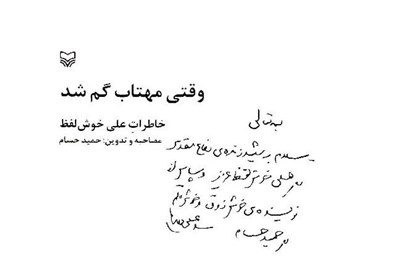 وقتی مهتاب گم شد
خاطرات علی خوش‌لفظ
مصاحبه و تدوین: حمید حسام
بسمه‌تعالی
سلام بر شهید زنده‌ی دفاع مقدس
علی خوش‌لفظ عزیز و سپاس از
نویسنده‌ی خوش ذوق و خوش قلم
حمید حسام